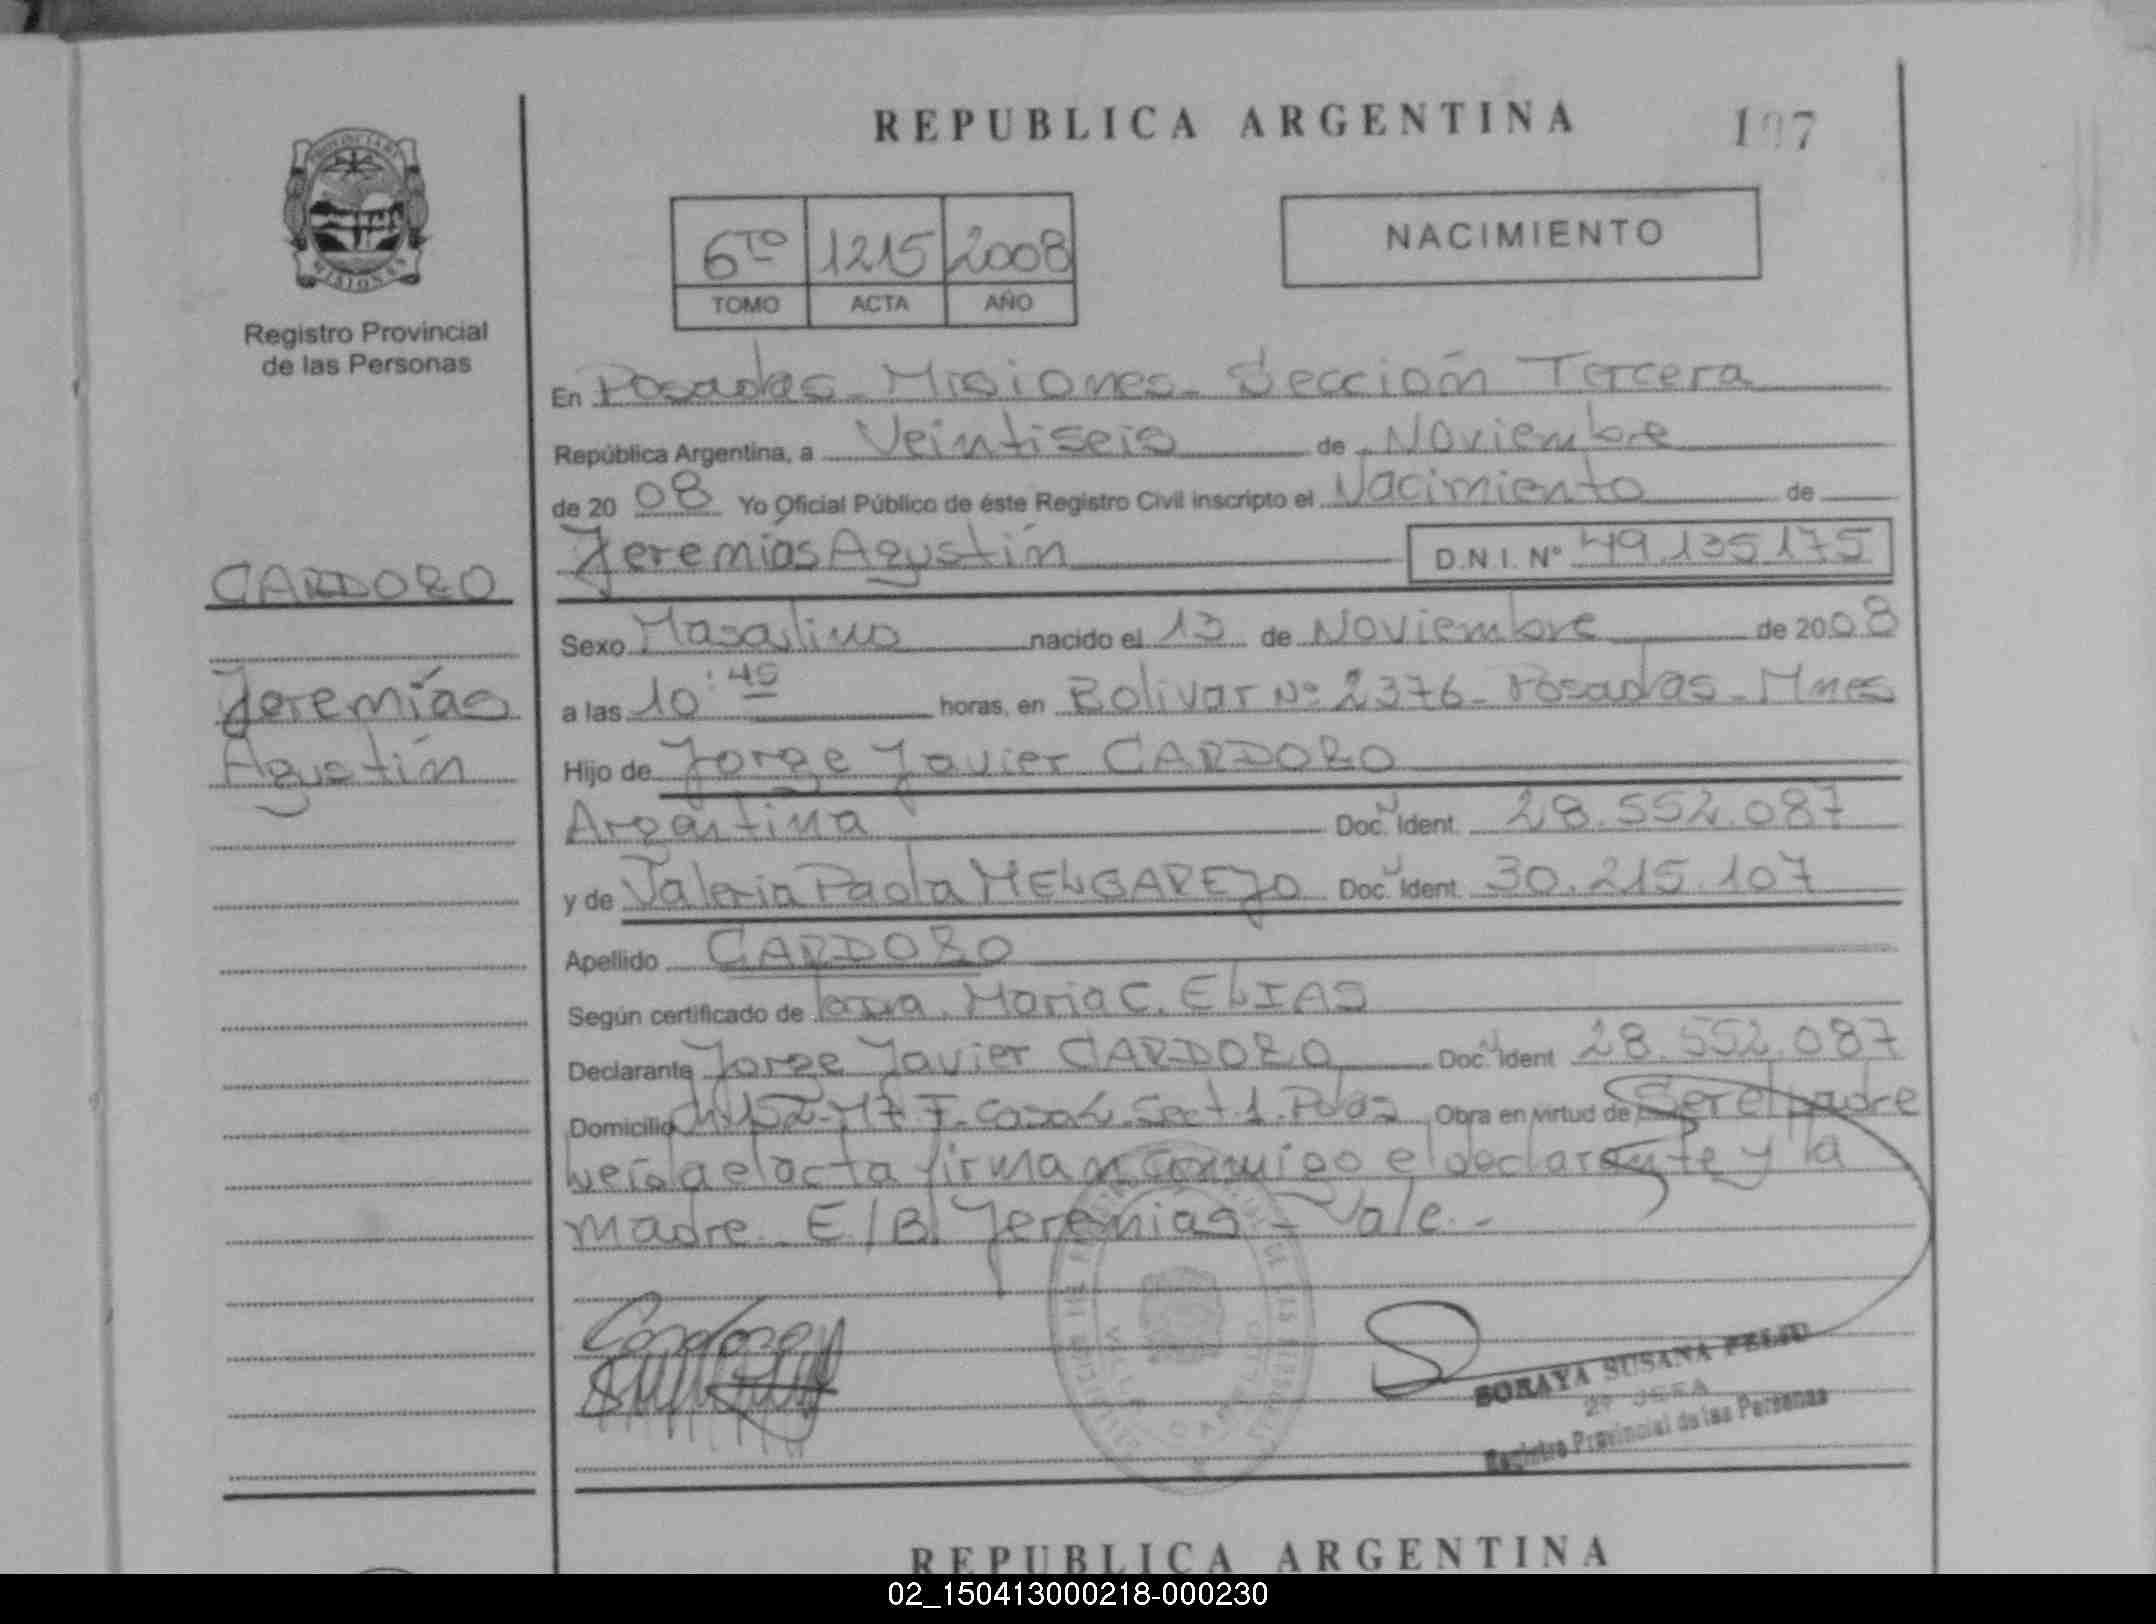 REPUBLICA ARGENTINA
197
6TO 1215 2008
TOMO ACTA AÑO
NACIMIENTO
PROVINCIA DE
MISIONES
Registro Provincial
de las Personas
En Posadas - Misiones - Sección Tercera
República Argentina, a Veintiseis de Noviembre
de 2008 Yo Oficial Público de éste Registro Civil inscripto el Nacimiento de
Jeremías Agustín D.N.I. Nº 49.135.175
CARDOZO
Jeremías
Agustín
Sexo Masculino nacido el 13 de Noviembre de 2008
a las 10:45 horas, en Bolivar Nº 2376 - Posadas - Mnes
Hijo de Jorge Javier CARDOZO
Argentina Doc. Ident. 28.552.087
y de Valeria Paola MELGAREJO Doc. Ident. 30.215.107
Apellido CARDOZO
Según certificado de María C. ELIAS
Declarante Jorge Javier CARDOZO Doc. Ident 28.552.087
Domicilio Ch 152 - Casa Sect. 1. Pdas Obra en virtud de Ser el padre
leída el acta firman conmigo el declarante y la
madre. E/B/ Jeremías - Vale. -
Cardozo
SORAYA SUSANA FELIU
2º JEFA
Registro Provincial de las Personas
REPUBLICA ARGENTINA
02_150413000218-000230